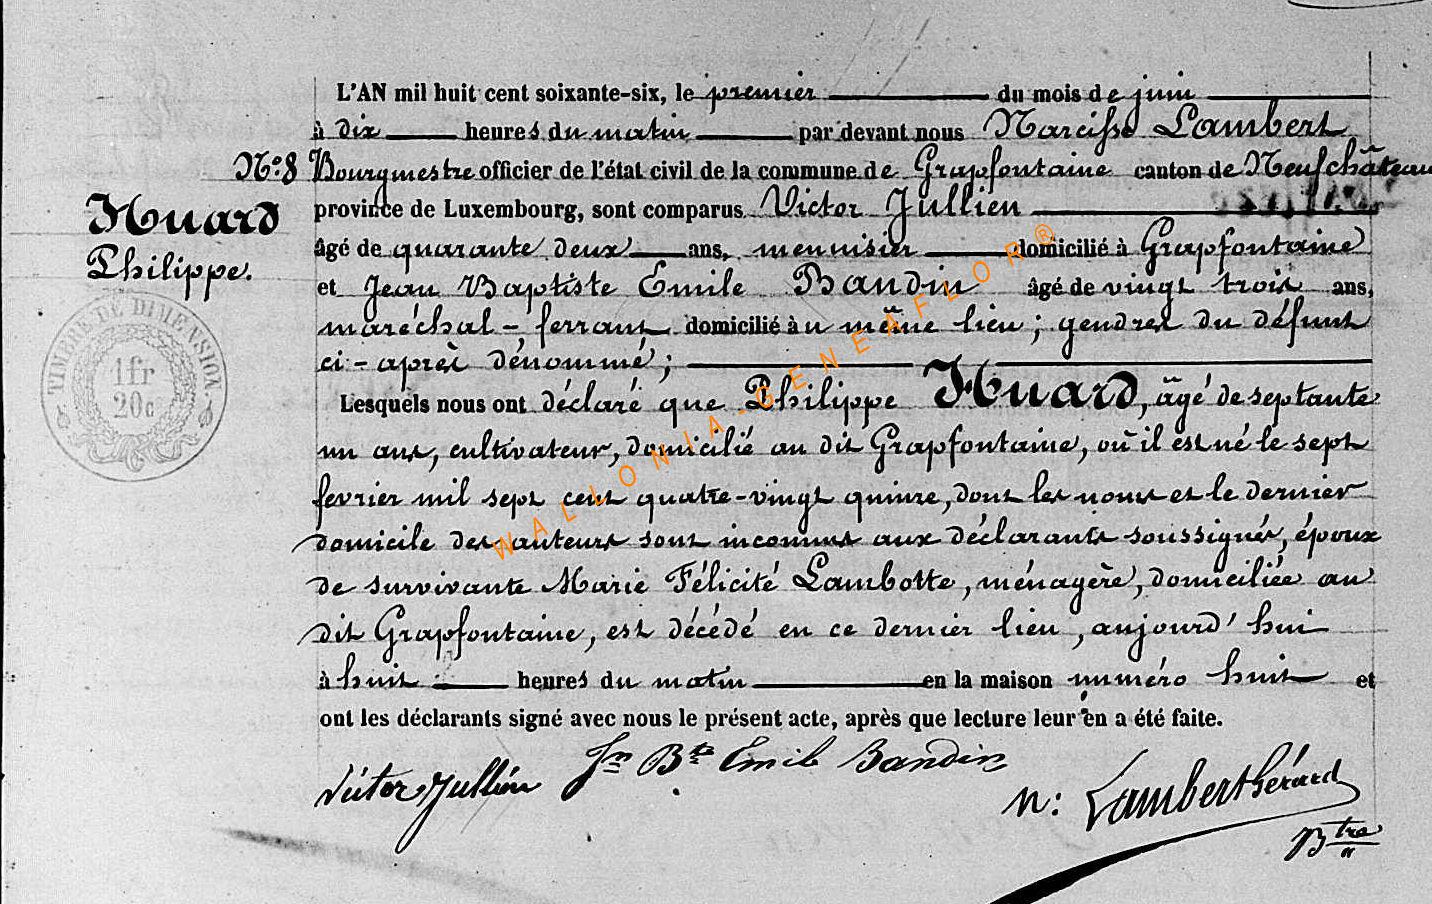 L'AN mil huit cent soixante-six, le premier du mois de juin
à dix heures du matin par devant nous Narcisse Lambert
N.o 8 Bourgmestre officier de l'état civil de la commune de Grapfontaine canton de Neufchâteau
Huard
Philippe.
province de Luxembourg, sont comparus Victor Jullien
âgé de quarante deux ans, menuisier domicilié à Grapfontaine
et Jean Baptiste Emile Baudin âgé de vingt trois ans,
maréchal-ferrant domicilié au même lieu; gendres du défunt
ci-après dénommé;
TIMBRE DE DIMENSION.
1fr
20c
Lesquels nous ont déclaré que Philippe Huard, âgé de septante
un ans, cultivateur, domicilié au dit Grapfontaine, où il est né le sept
fevrier mil sept cent quatre-vingt quinze, dont les noms et le dernier
domicile des auteurs sont inconnus aux déclarants soussignés, époux
de survivante Marie Félicité Lambotte, ménagère, domiciliée au
dit Grapfontaine, est décédé en ce dernier lieu, aujourd'hui
à huit heures du matin en la maison numéro huit et
ont les déclarants signé avec nous le présent acte, après que lecture leur en a été faite.
Victor Jullien Jn Bte Emile Baudin N: Lambert Gérard
Btre
WALLONIA-GENEAFLOR®